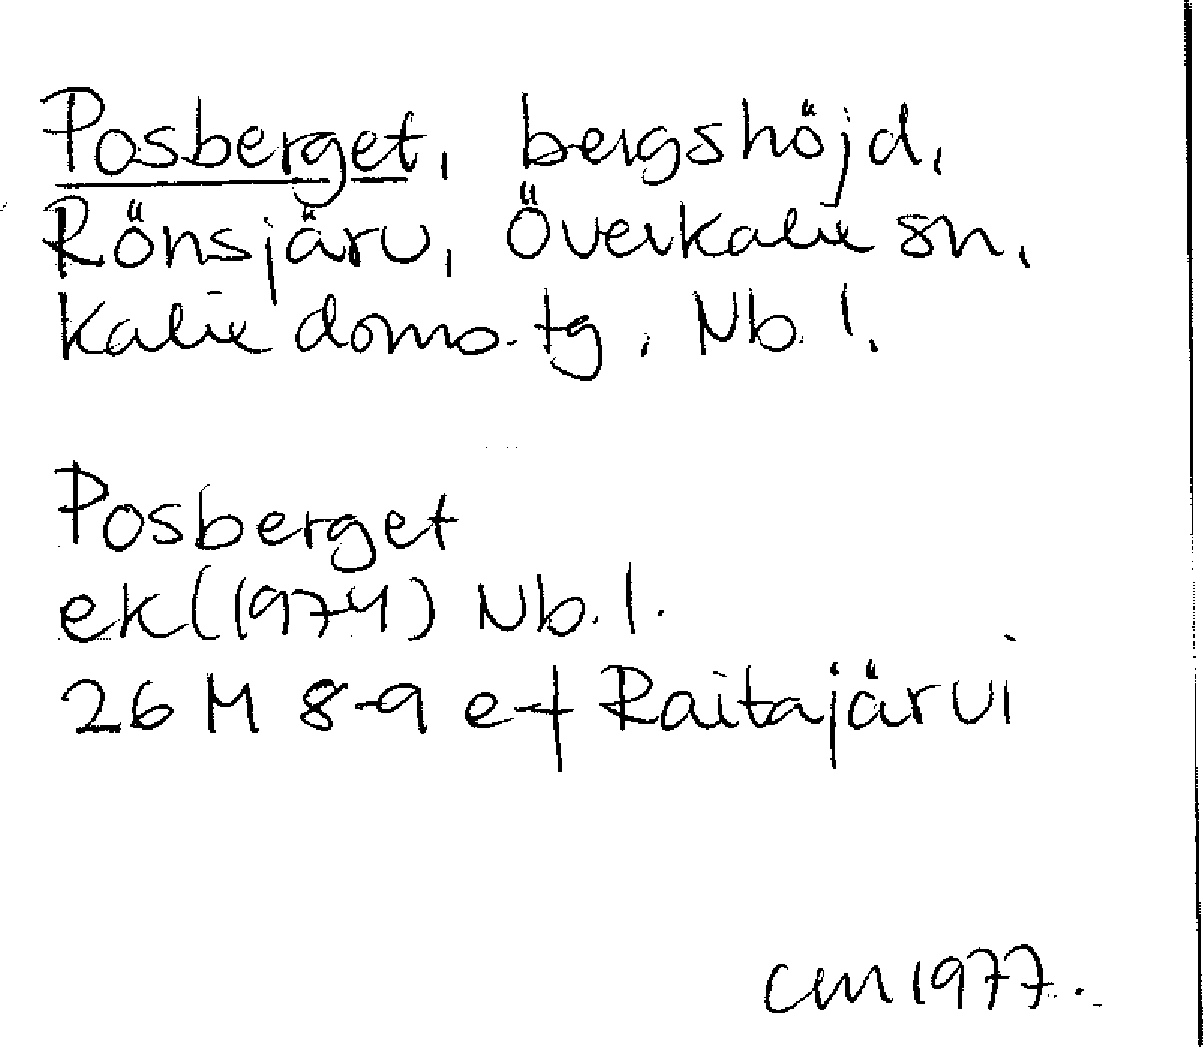 Posberget, bergshöjd,
Rönsjärv, Överkalix sn,
Kalix doms. tg, Nb. l.
Posberget
ek (1974) Nb. l.
26 M 8-9 e-f Raitajärvi
CM 1977.